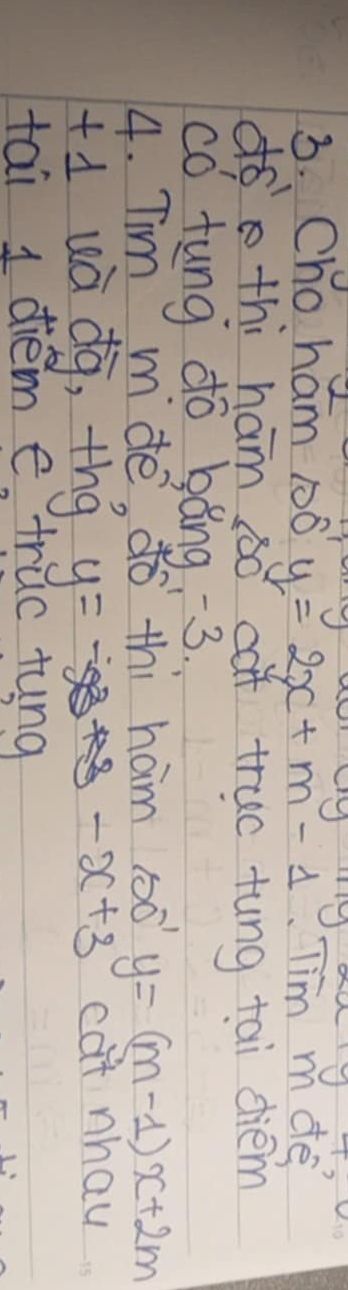 3. Cho hàm số y = 2x + m - 1. Tìm m để
đồ thị hàm số cắt trục tung tại điểm
có tung độ bằng -3.
4. Tìm m để đồ thị hàm số y = (m-1)x+2m
+1 và đg, thg y = -x+3 cắt nhau
tại 1 điểm ∈ trục tung